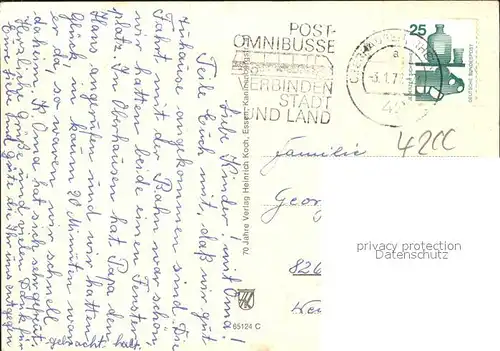 Liebe Kinder! mit Oma!
Teile Euch mit, daß wir gut
zuhause angekommen sind. Die
Fahrt mit der Bahn war schön,
wir hatten beide einen Fenster-
platz. In Oberhausen hat Papa den
Hans angerufen und wir hatten
Glück, in kaum 20 Minuten war
er da, so waren wir schnell
daheim. Oma hat sich sehr gefreut.
Herzliche Grüße und vielen Dank für
Eine liebe und gute die Ihr uns entgegen
gebracht habt.
POST-
OMNIBUSSE
VERBINDEN
STADT
UND LAND
25
DEUTSCHE BUNDESPOST
4200
Familie
Georg
826
70 Jahre Verlag Heinrich Koch, Essen
65124 C
privacy protection
Datenschutz